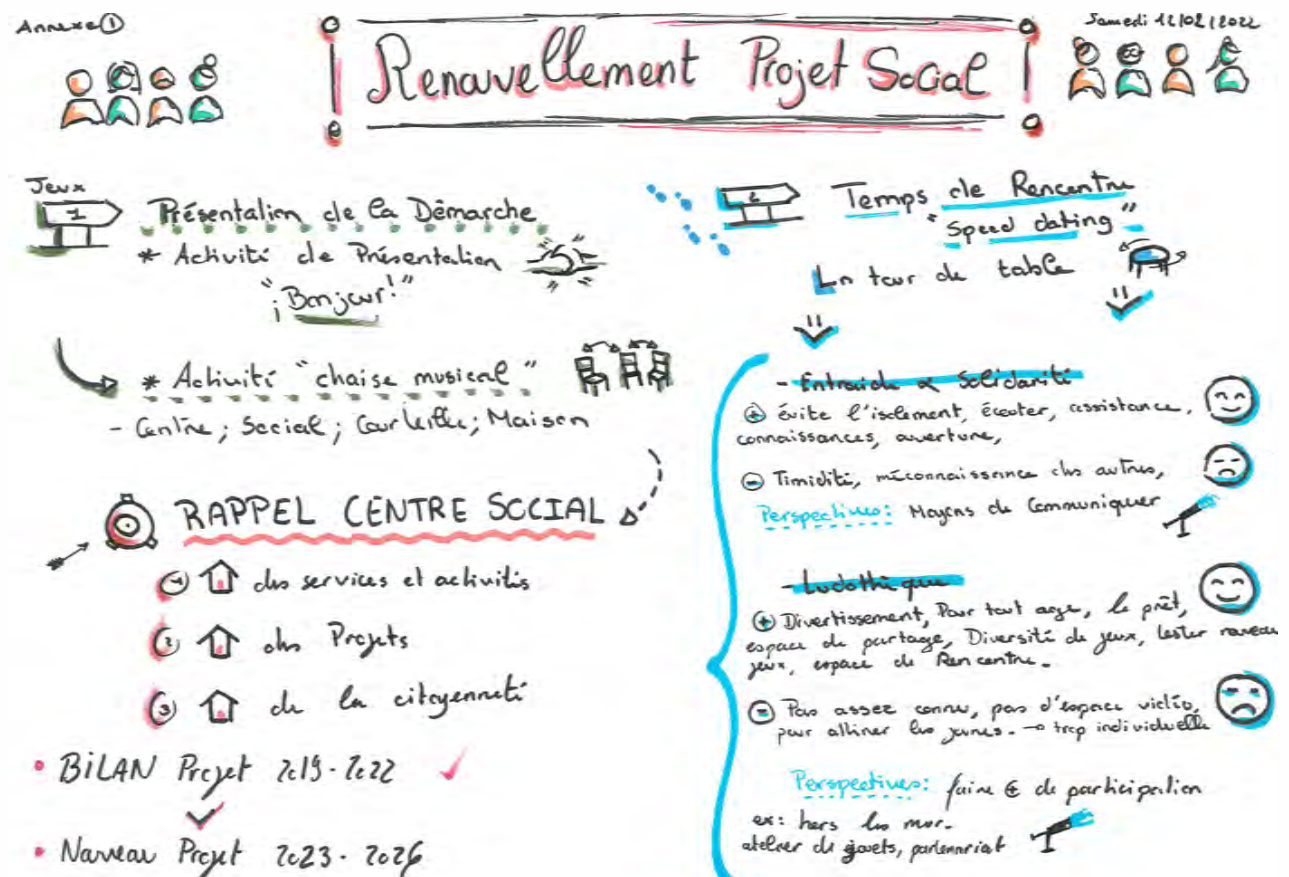 Annexe 1
Samedi 12/02/2022
Renouvellement Projet Social
Jeux
1
Présentation de la Démarche
* Activité de Présentation
"¡Bonjour!"
* Activité "chaise musical"
- Centre; Social; Courteille; Maison
RAPPEL CENTRE SOCIAL
1 des services et activités
2 des Projets
3 de la citoyenneté
• BILAN Projet 2019-2022 ✓
• Nouveau Projet 2023-2026
2
Temps de Rencontre
"Speed dating"
Ln tour de table
- Entraide & Solidarité
⊕ évite l'isolement, écouter, assistance,
connaissances, ouverture,
⊖ Timidité, méconnaissance des autres,
Perspectives: Moyens de Communiquer
- Ludothèque
⊕ Divertissement, Pour tout age, le prêt,
espace de partage, Diversité de jeux, tester nouveau
jeux, espace de Rencontre.
⊖ Pas assez connu, pas d'espace vidéo,
pour attirer les jeunes. → trop individuelle
Perspectives: faire ⊕ de participation
ex: hors les mur.
atelier de jouets, partenariat